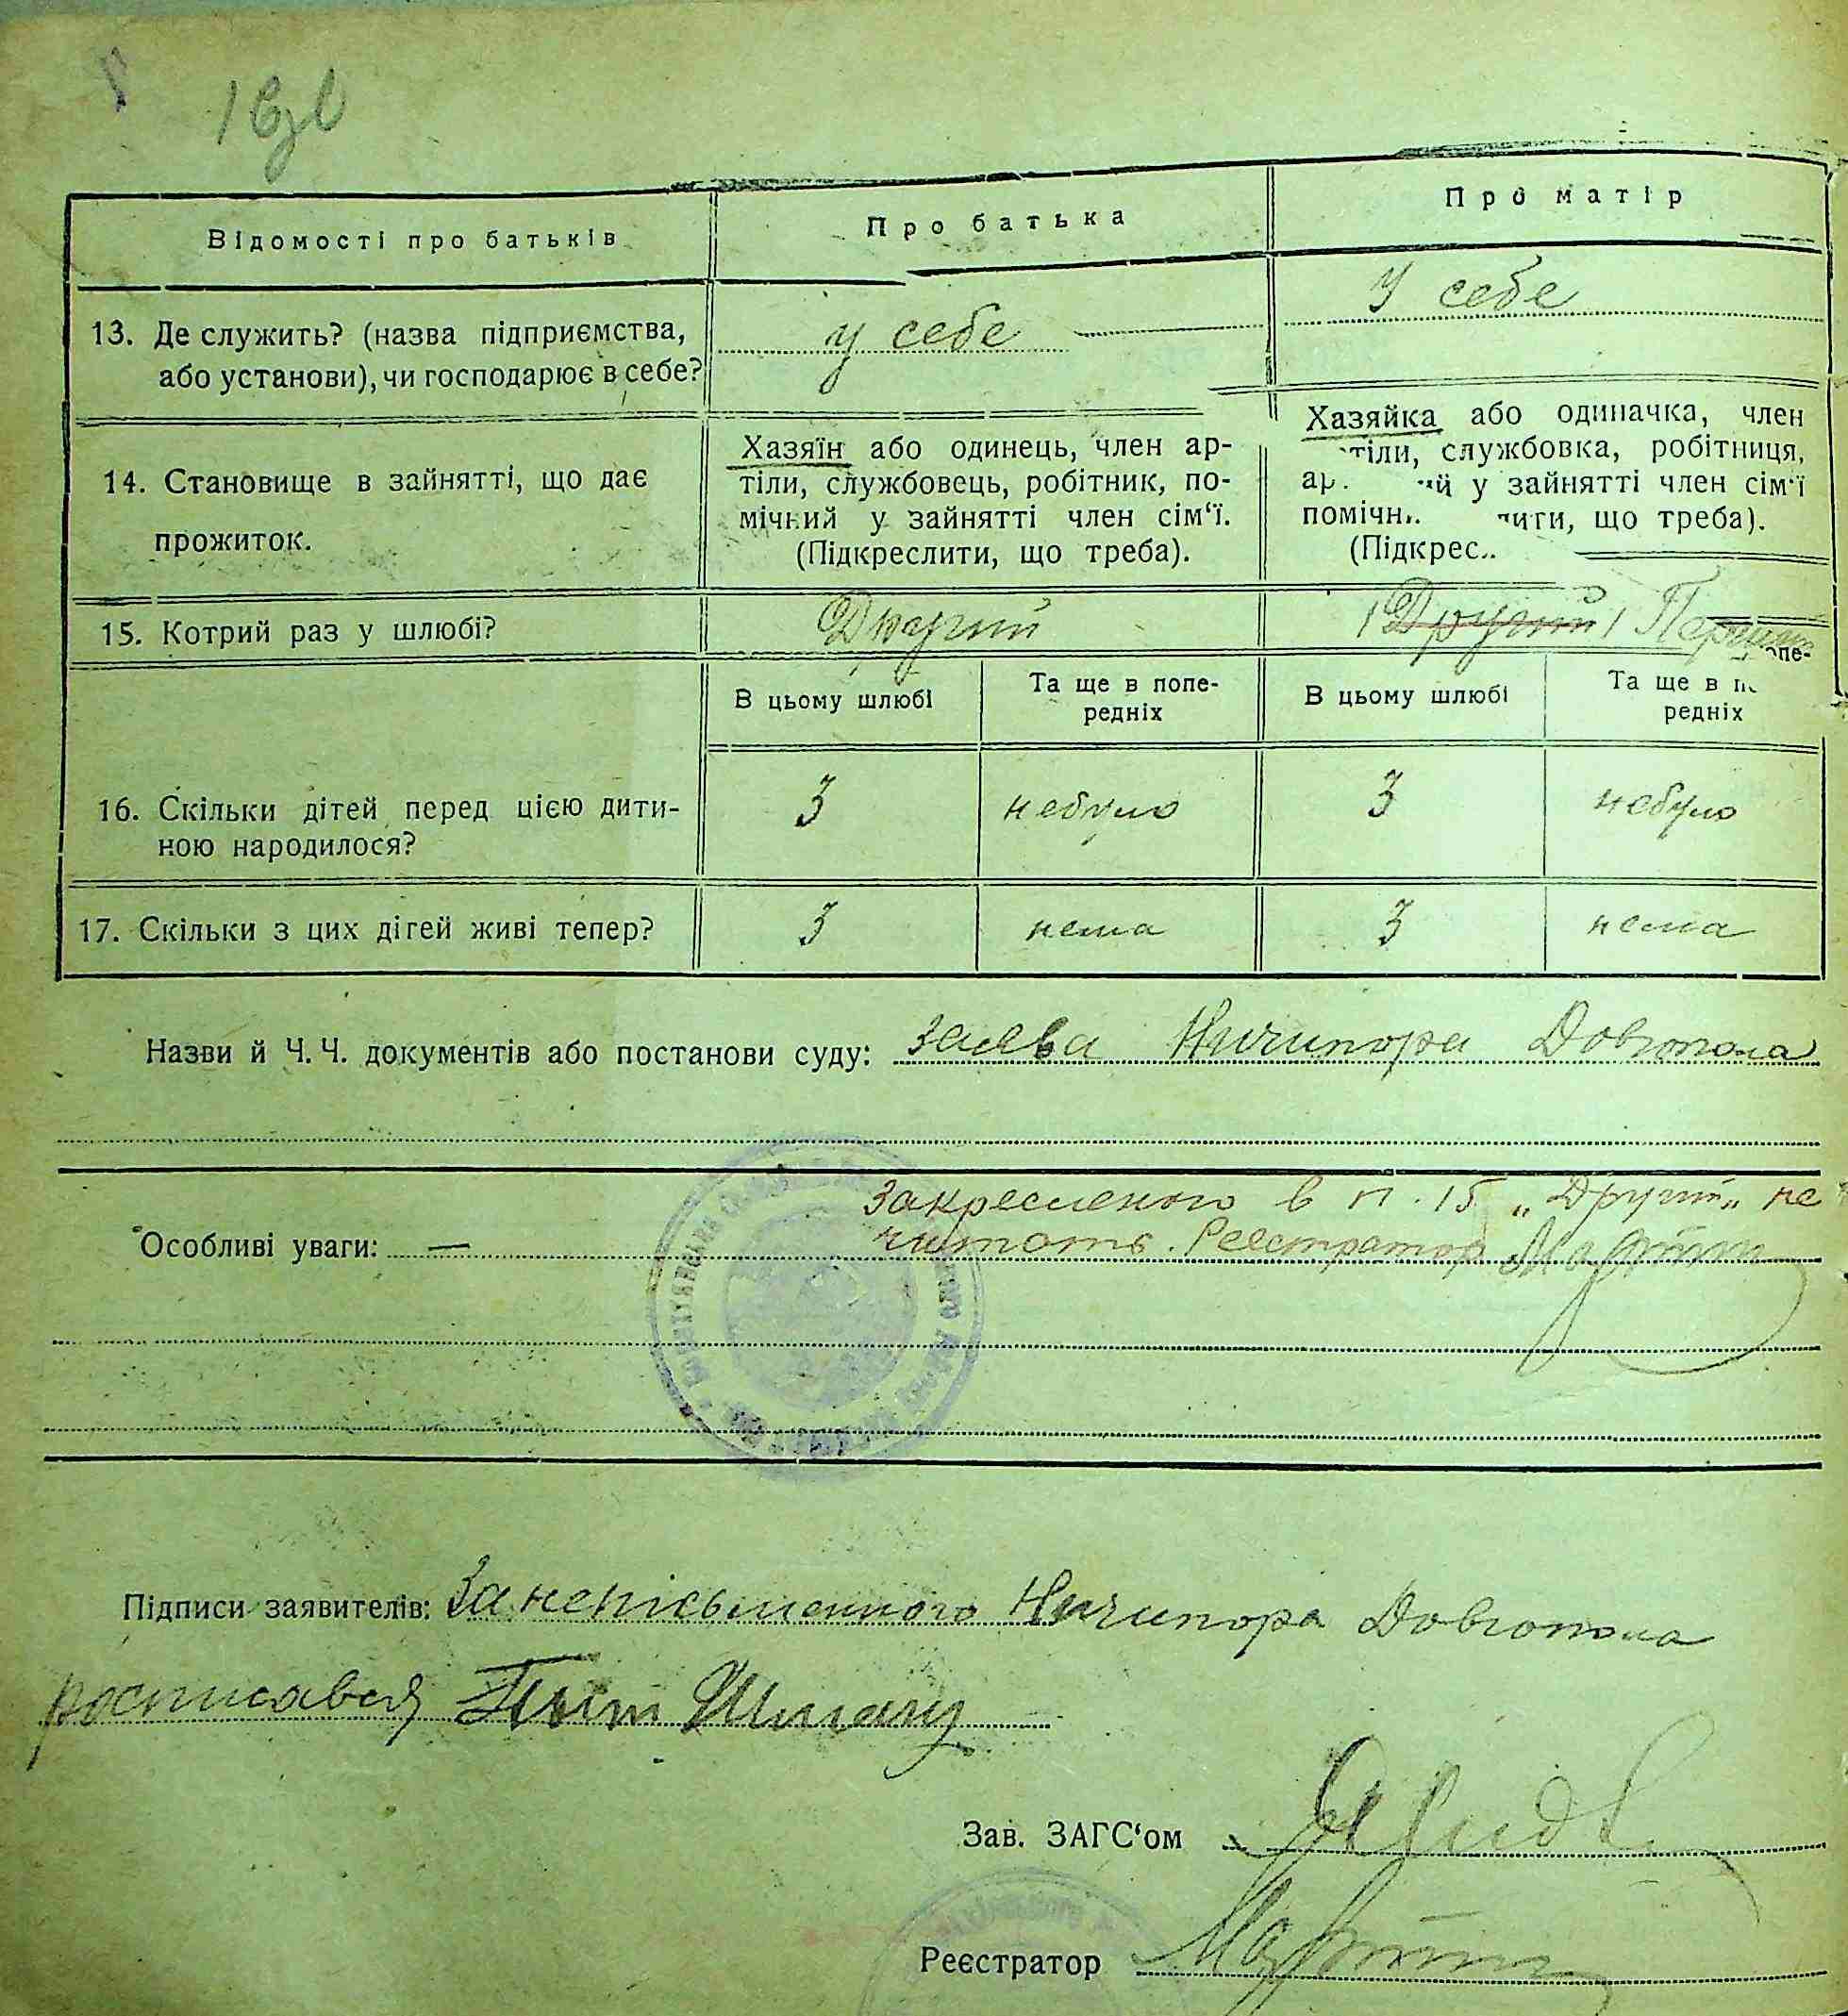 Відомості про батьків
Про батька
Про матір
13. Де служить? (назва підприємства,
або установи), чи господарює в себе?
у себе
У себе
14. Становище в зайнятті, що дає
прожиток.
Хазяїн або одинець, член ар-
тіли, службовець, робітник, по-
мічний у зайнятті член сім‘ї.
(Підкреслити, що треба).
Хазяйка або одиначка, член
тіли, службовка, робітниця,
ар. ий у зайнятті член сім‘ї
помічн. ити, що треба).
(Підкрес..
15. Котрий раз у шлюбі?
Другий
Другий Перший
В цьому шлюбі
Та ще в попе-
редніх
В цьому шлюбі
Та ще в попе-
редніх
16. Скільки дітей перед цією дити-
ною народилося?
3
небуло
3
небуло
17. Скільки з цих дітей живі тепер?
3
нема
3
нема
Назви й Ч. Ч. документів або постанови суду: заява Ничипора Довгопола
Закресленого в п. 15 „Другий„ не
Особливі уваги: — читать. Реєстратор
Підписи заявителів: За неписьменного Ничипора Довгопола
росписався
Зав. ЗАГС‘ом
Реєстратор